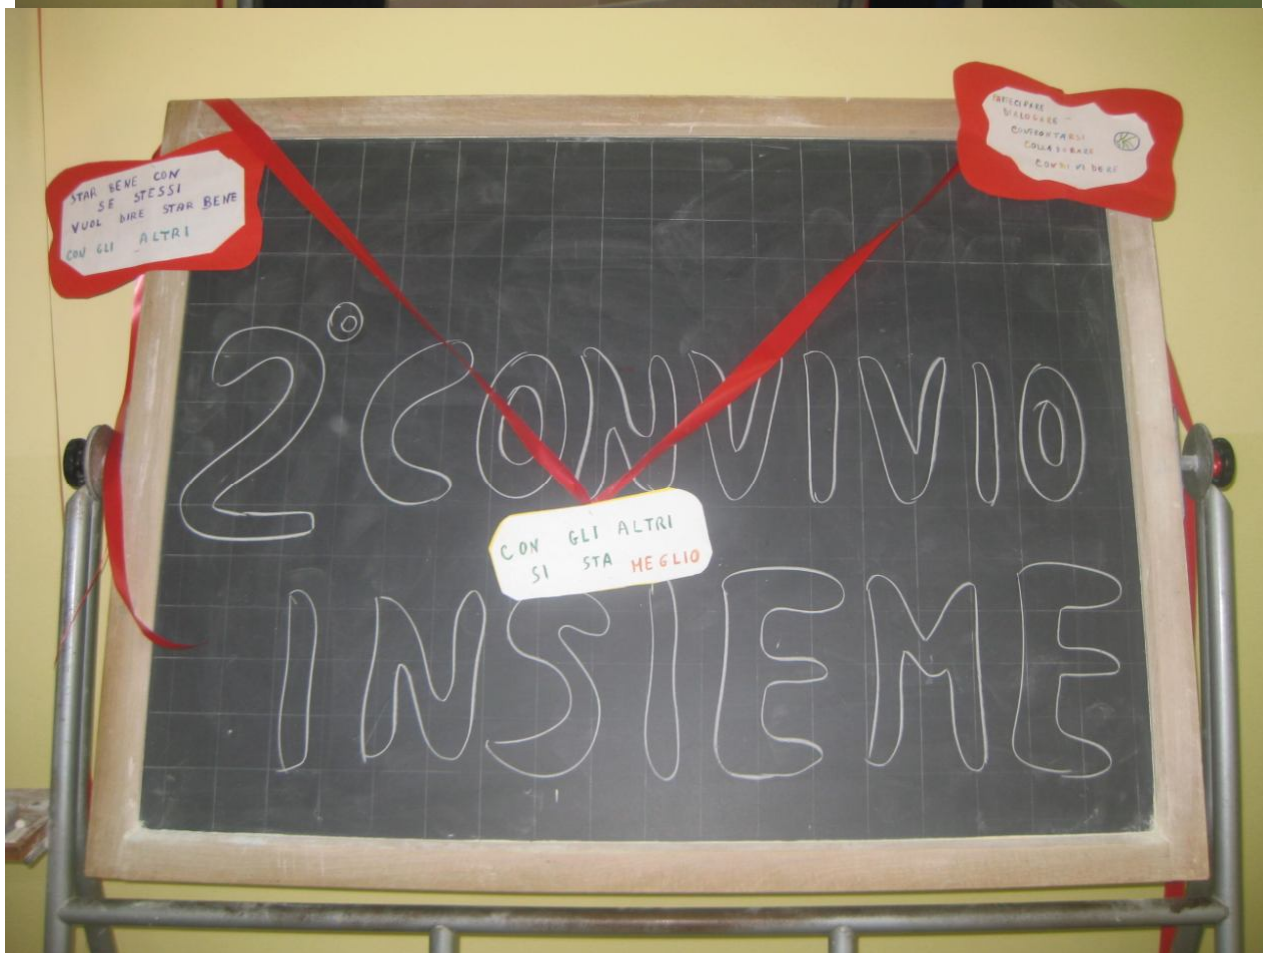 STAR BENE CON
SE STESSI
VUOL DIRE STAR BENE
CON GLI ALTRI
PARTECIPARE
DIALOGARE -
CONFRONTARSI
COLLABORARE
CONDIVIDERE
2° CONVIVIO
CON GLI ALTRI
SI STA MEGLIO
INSIEME